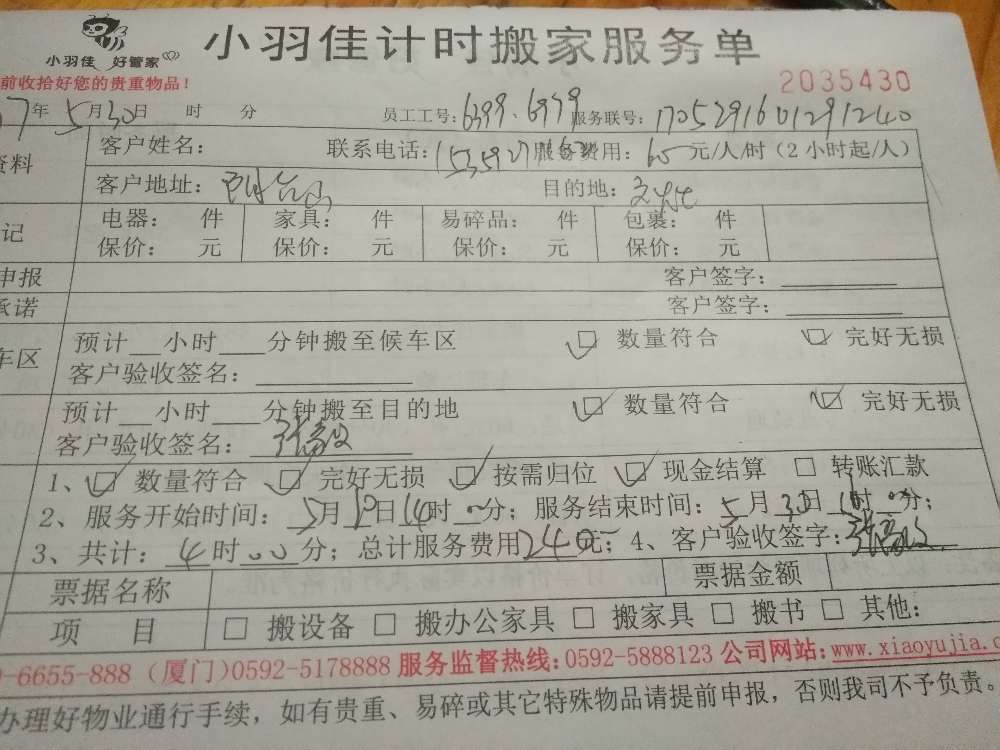 小羽佳 好管家
小羽佳计时搬家服务单
前收拾好您的贵重物品！
2035430
7年5月30日 时 分 员工工号：6399.6979 服务联号：1705291601291240
资料 客户姓名： 联系电话： 服务费用：60元/人/时（2小时起/人）
客户地址： 目的地：
记 电器： 件 家具： 件 易碎品： 件 包裹： 件
保价： 元 保价： 元 保价： 元 保价： 元
申报 客户签字：
承诺 客户签字：
车区 预计__小时___分钟搬至候车区 ☑ 数量符合 ☑ 完好无损
客户验收签名：
预计__小时___分钟搬至目的地 ☑ 数量符合 ☑ 完好无损
客户验收签名：
1、☑ 数量符合 ☑ 完好无损 ☑ 按需归位 ☑ 现金结算 □ 转账汇款
2、服务开始时间：5月日14时00分；服务结束时间：5月30日时00分；
3、共计：4时00分；总计服务费用240元；4、客户验收签字：
票据名称 票据金额
项 目 □ 搬设备 □ 搬办公家具 □ 搬家具 □ 搬书 □ 其他：
0-6655-888（厦门）0592-5178888 服务监督热线：0592-5888123 公司网站：www.xiaoyujia.c
办理好物业通行手续，如有贵重、易碎或其它特殊物品请提前申报，否则我司不予负责。